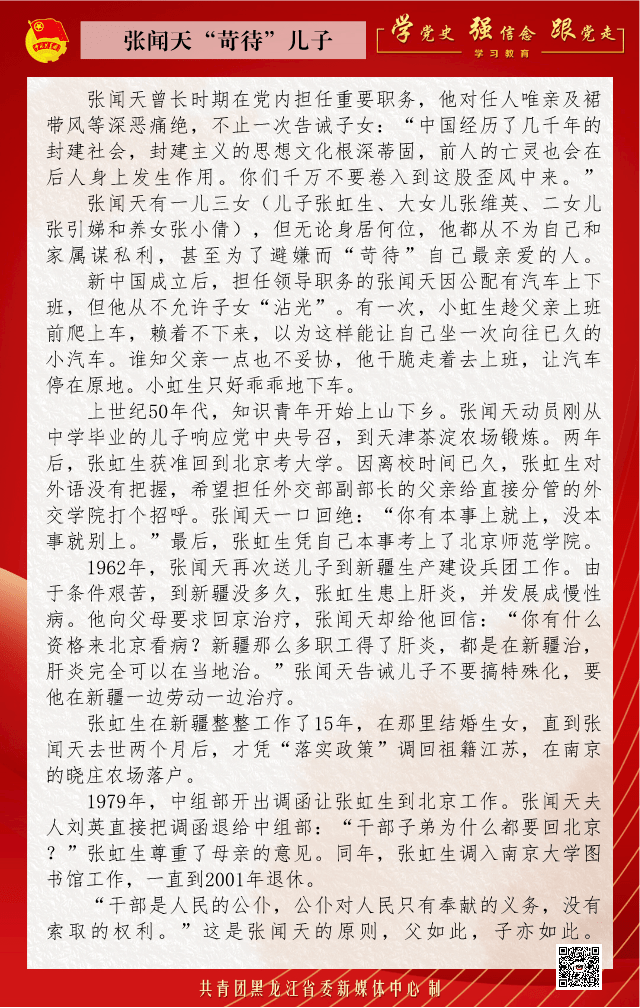 张闻天“苛待”儿子
学党史 强信念 跟党走
学习教育
张闻天曾长时期在党内担任重要职务，他对任人唯亲及裙
带风等深恶痛绝，不止一次告诫子女：“中国经历了几千年的
封建社会，封建主义的思想文化根深蒂固，前人的亡灵也会在
后人身上发生作用。你们千万不要卷入到这股歪风中来。”
张闻天有一儿三女（儿子张虹生、大女儿张维英、二女儿
张引娣和养女张小倩），但无论身居何位，他都从不为自己和
家属谋私利，甚至为了避嫌而“苛待”自己最亲爱的人。
新中国成立后，担任领导职务的张闻天因公配有汽车上下
班，但他从不允许子女“沾光”。有一次，小虹生趁父亲上班
前爬上车，赖着不下来，以为这样能让自己坐一次向往已久的
小汽车。谁知父亲一点也不妥协，他干脆走着去上班，让汽车
停在原地。小虹生只好乖乖地下车。
上世纪50年代，知识青年开始上山下乡。张闻天动员刚从
中学毕业的儿子响应党中央号召，到天津茶淀农场锻炼。两年
后，张虹生获准回到北京考大学。因离校时间已久，张虹生对
外语没有把握，希望担任外交部副部长的父亲给直接分管的外
交学院打个招呼。张闻天一口回绝：“你有本事上就上，没本
事就别上。”最后，张虹生凭自己本事考上了北京师范学院。
1962年，张闻天再次送儿子到新疆生产建设兵团工作。由
于条件艰苦，到新疆没多久，张虹生患上肝炎，并发展成慢性
病。他向父母要求回京治疗，张闻天却给他回信：“你有什么
资格来北京看病？新疆那么多职工得了肝炎，都是在新疆治，
肝炎完全可以在当地治。”张闻天告诫儿子不要搞特殊化，要
他在新疆一边劳动一边治疗。
张虹生在新疆整整工作了15年，在那里结婚生女，直到张
闻天去世两个月后，才凭“落实政策”调回祖籍江苏，在南京
的晓庄农场落户。
1979年，中组部开出调函让张虹生到北京工作。张闻天夫
人刘英直接把调函退给中组部：“干部子弟为什么都要回北京
？”张虹生尊重了母亲的意见。同年，张虹生调入南京大学图
书馆工作，一直到2001年退休。
“干部是人民的公仆，公仆对人民只有奉献的义务，没有
索取的权利。”这是张闻天的原则，父如此，子亦如此。
共青团黑龙江省委新媒体中心 制